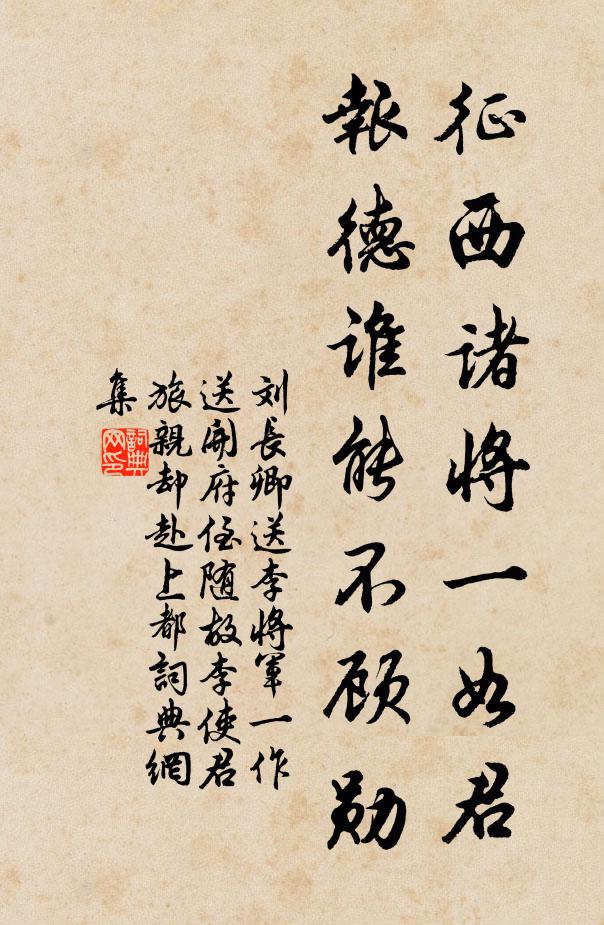 征西诸将一如君
報德谁能不顾勋
刘長卿送李将軍一作
送開府侄随故李使君
旅親却赴上都詞典網
集
詞典网印